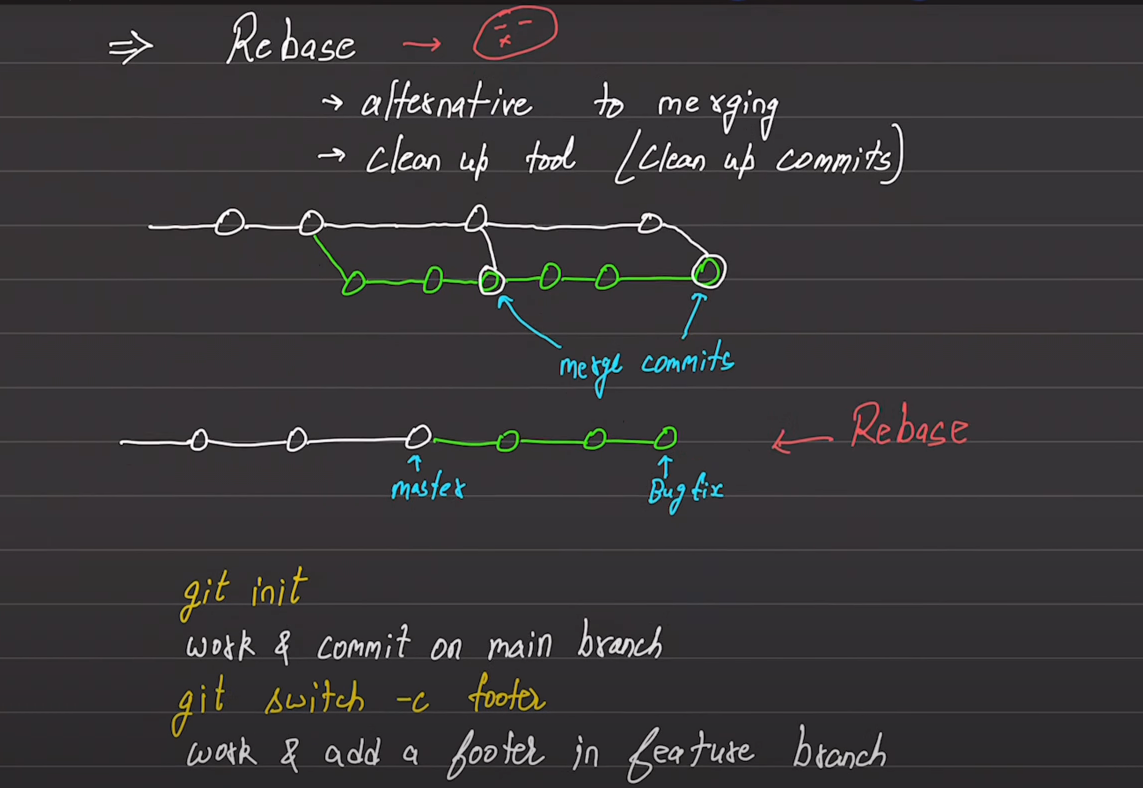 ⇒ Rebase →
→ alternative to merging
→ clean up tool (clean up commits)
merge commits
← Rebase
master
Bugfix
git init
work & commit on main branch
git switch -c footer
work & add a footer in feature branch